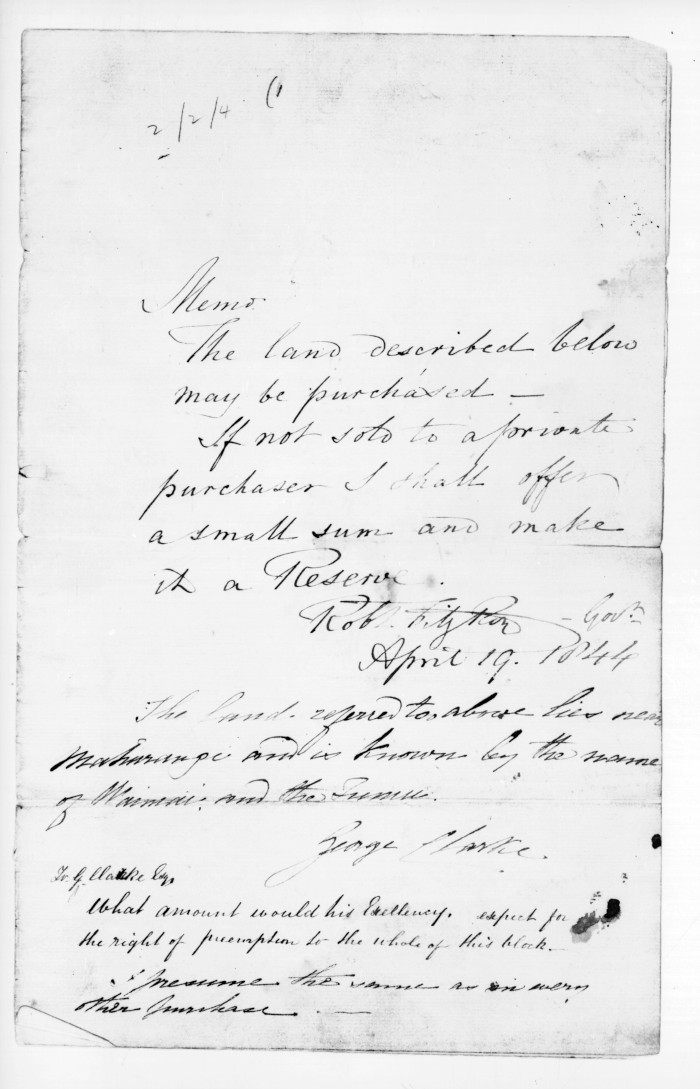 2/2/4 (1
Memo.
The land described below
may be purchased —
If not sold to a private
purchaser I shall offer
a small sum and make
it a Reserve.
Robt. FitzRoy — Govr.
April 19. 1844
The land referred to above lies near
Mahurangi and is known by the name
of Waimai. and the Tumu.
George Clarke.
To G. Clarke Esq.
What amount would his Exellency. expect for
the right of preemption to the whole of this block.
I presume the same as in every
other purchase. —